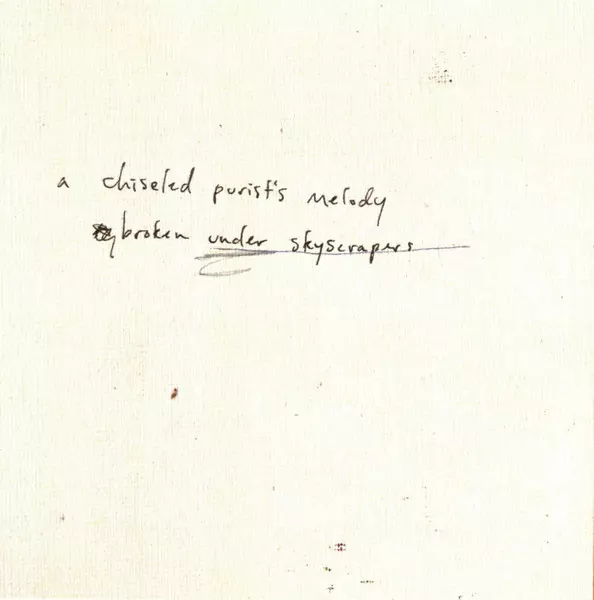 a chiseled purist's melody
broken under skyscrapers